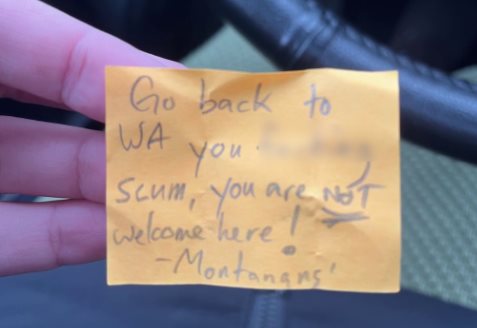 Go back to
WA you
scum, you are NOT
welcome here!
-Montanans'